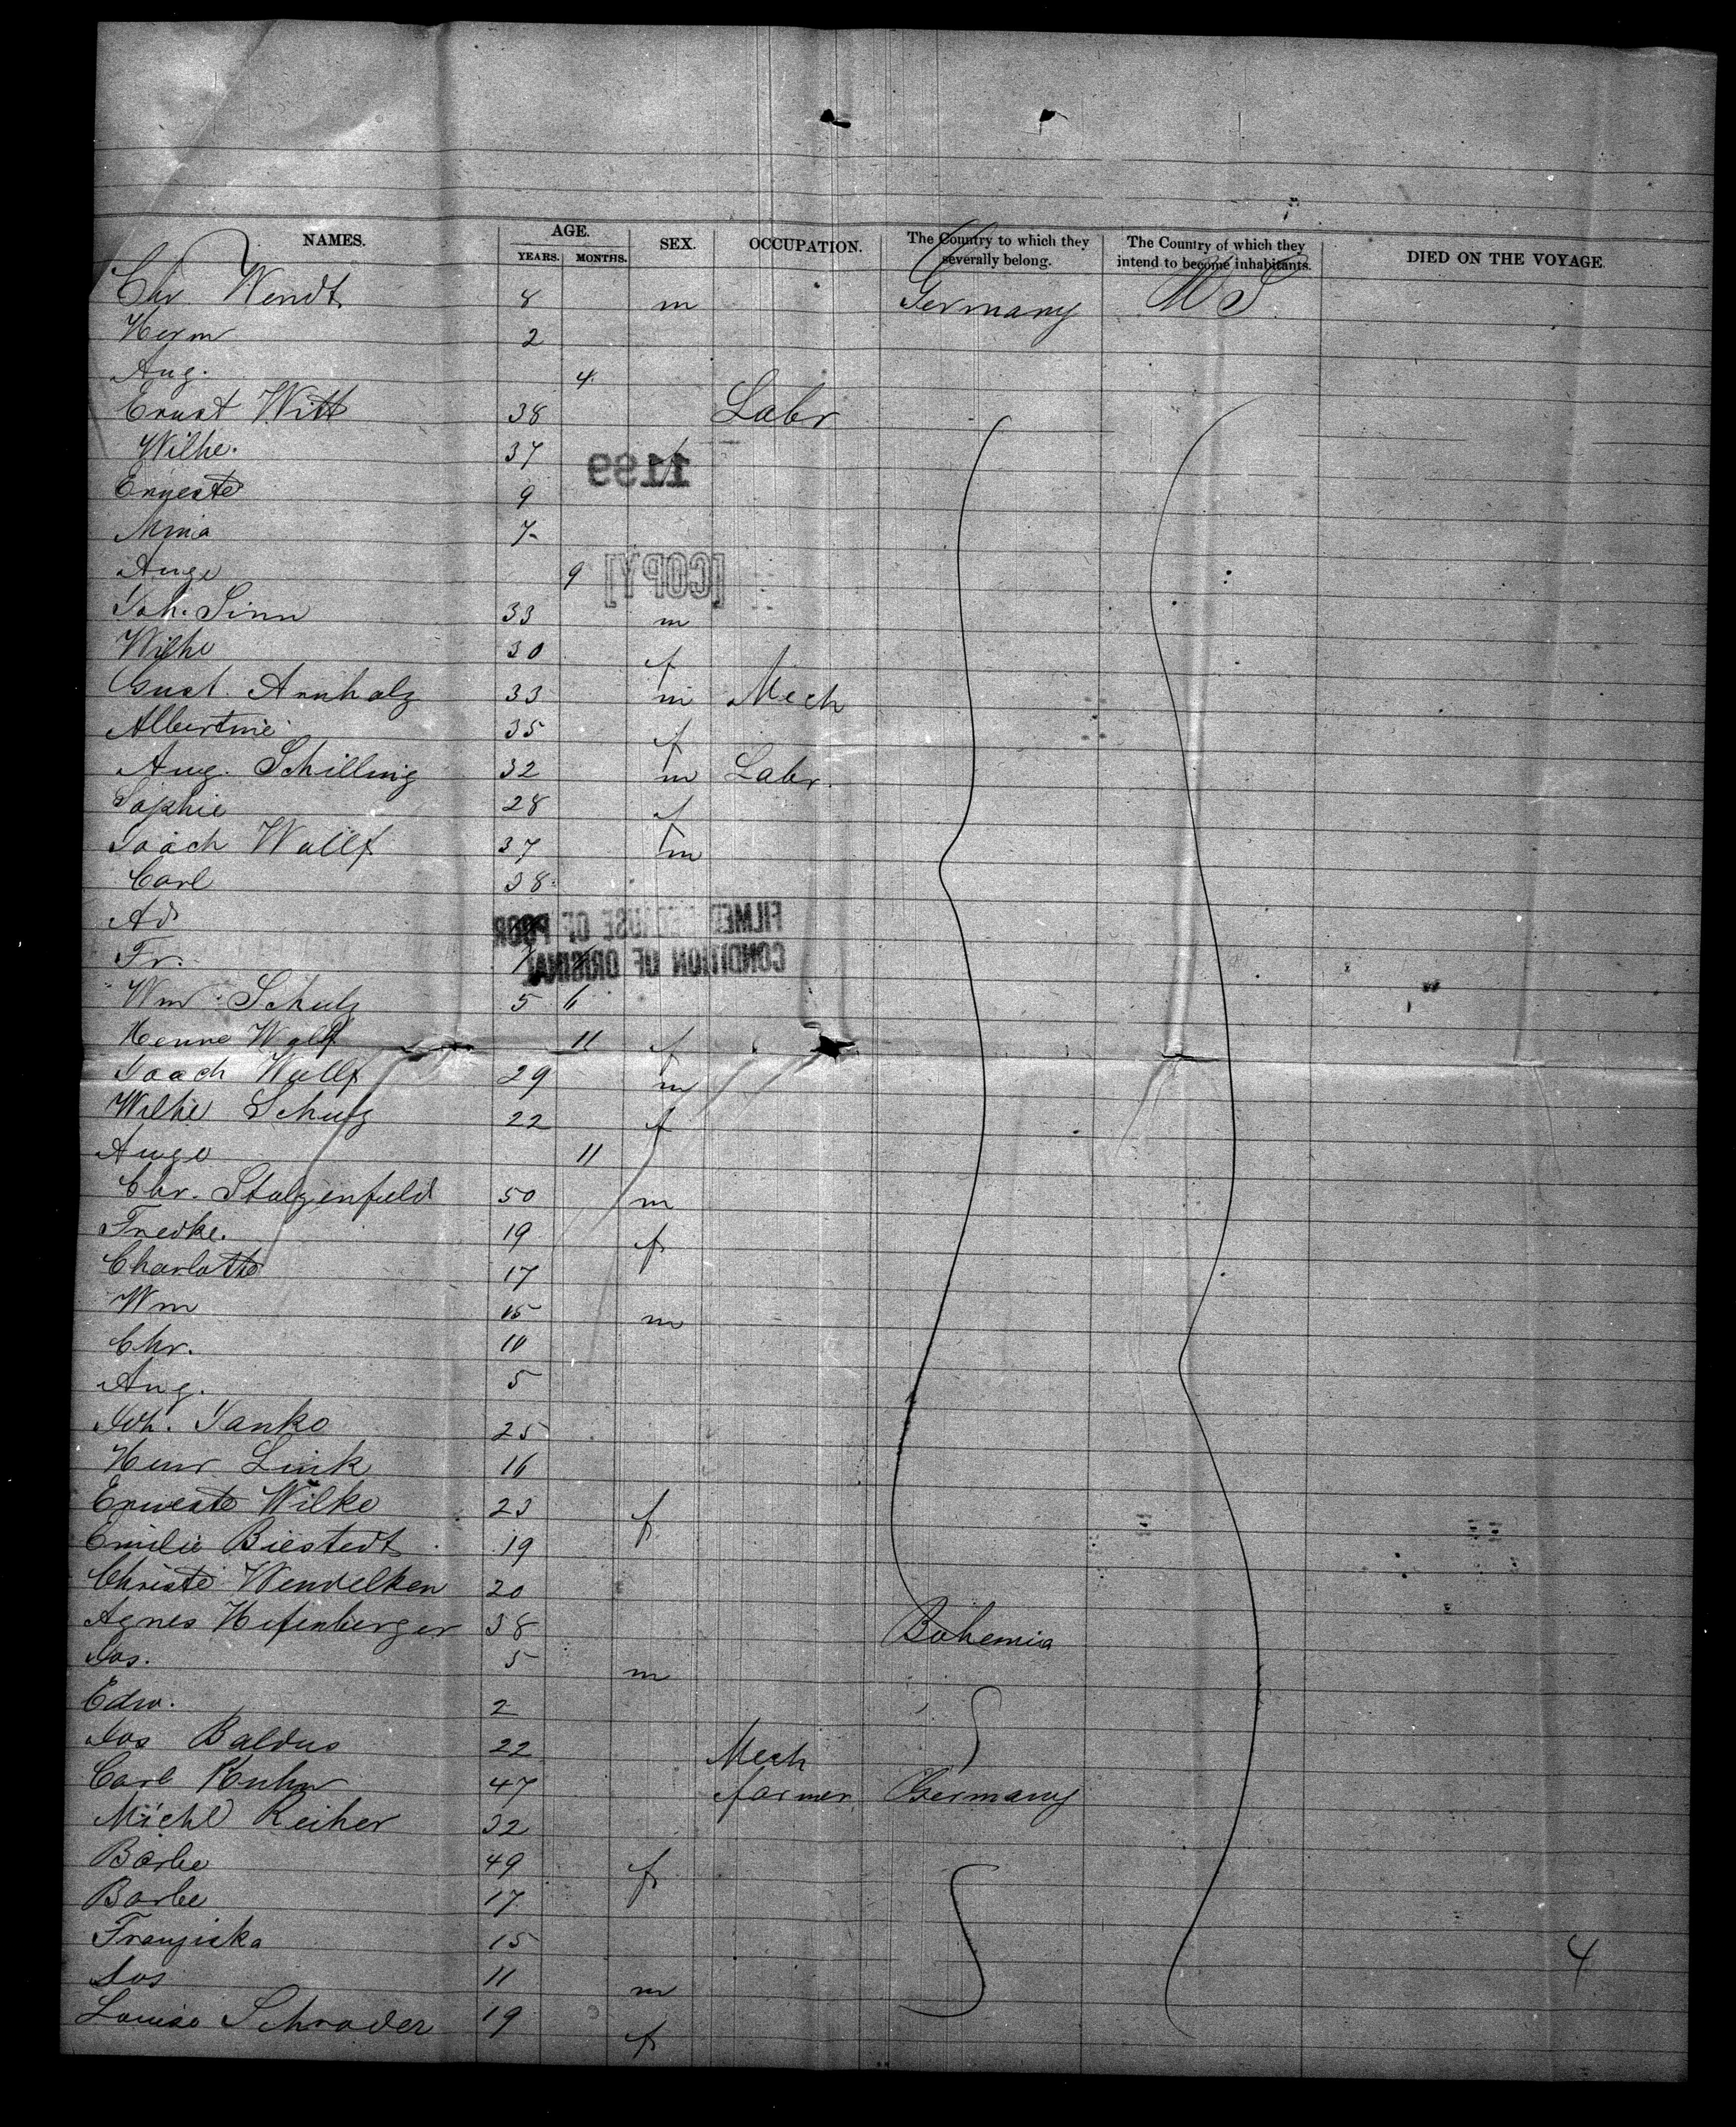 NAMES. AGE. YEARS. MONTHS. SEX. OCCUPATION. The Country to which they severally belong. The Country of which they intend to become inhabitants. DIED ON THE VOYAGE
Chr Wendt 8 m Germany U S
Herm 2
Aug. 4
Ernst Witt 38 Labr
Wilhe. 37 f
1199
Erneste 9
Mina 7
Auge 9
[COPY]
Joh. Sinn 33 m
Wilhe 30 f
Gust. Arnholz 33 m Mech
Albertine 35 f
Aug. Schilling 32 m Labr.
Sophie 28 f
Joach Wullf 37 m
Carl 38
Ad
FILMED BECAUSE OF POOR
CONDITION OF ORIGINAL
Fr.
Wm Schulz 5 6
Henne Wolf 11 f
Joach Wullf 29 m
Wilhe Schulz 22 f
Auge 11
Chr. Stolzenfeld 50 m
Fredke. 19 f
Charlotte 17
Wm 15 m
Chr. 10
Aug. 5
Joh. Janko 25
Henr Link 16
Erneste Wilke 23 f
Emilie Biestedt 19
Christe Wendelken 20
Agnes Hefenberger 38 Bohemia
Jos. 5 m
Edw. 2
Jos Baldus 22 Mech
Carl Kuhn 47 farmer Germany
Michl Reiher 32
Barbe 49 f
Barbe 17
Franziska 15
4
Jos 11 m
Louise Schrader 19 f